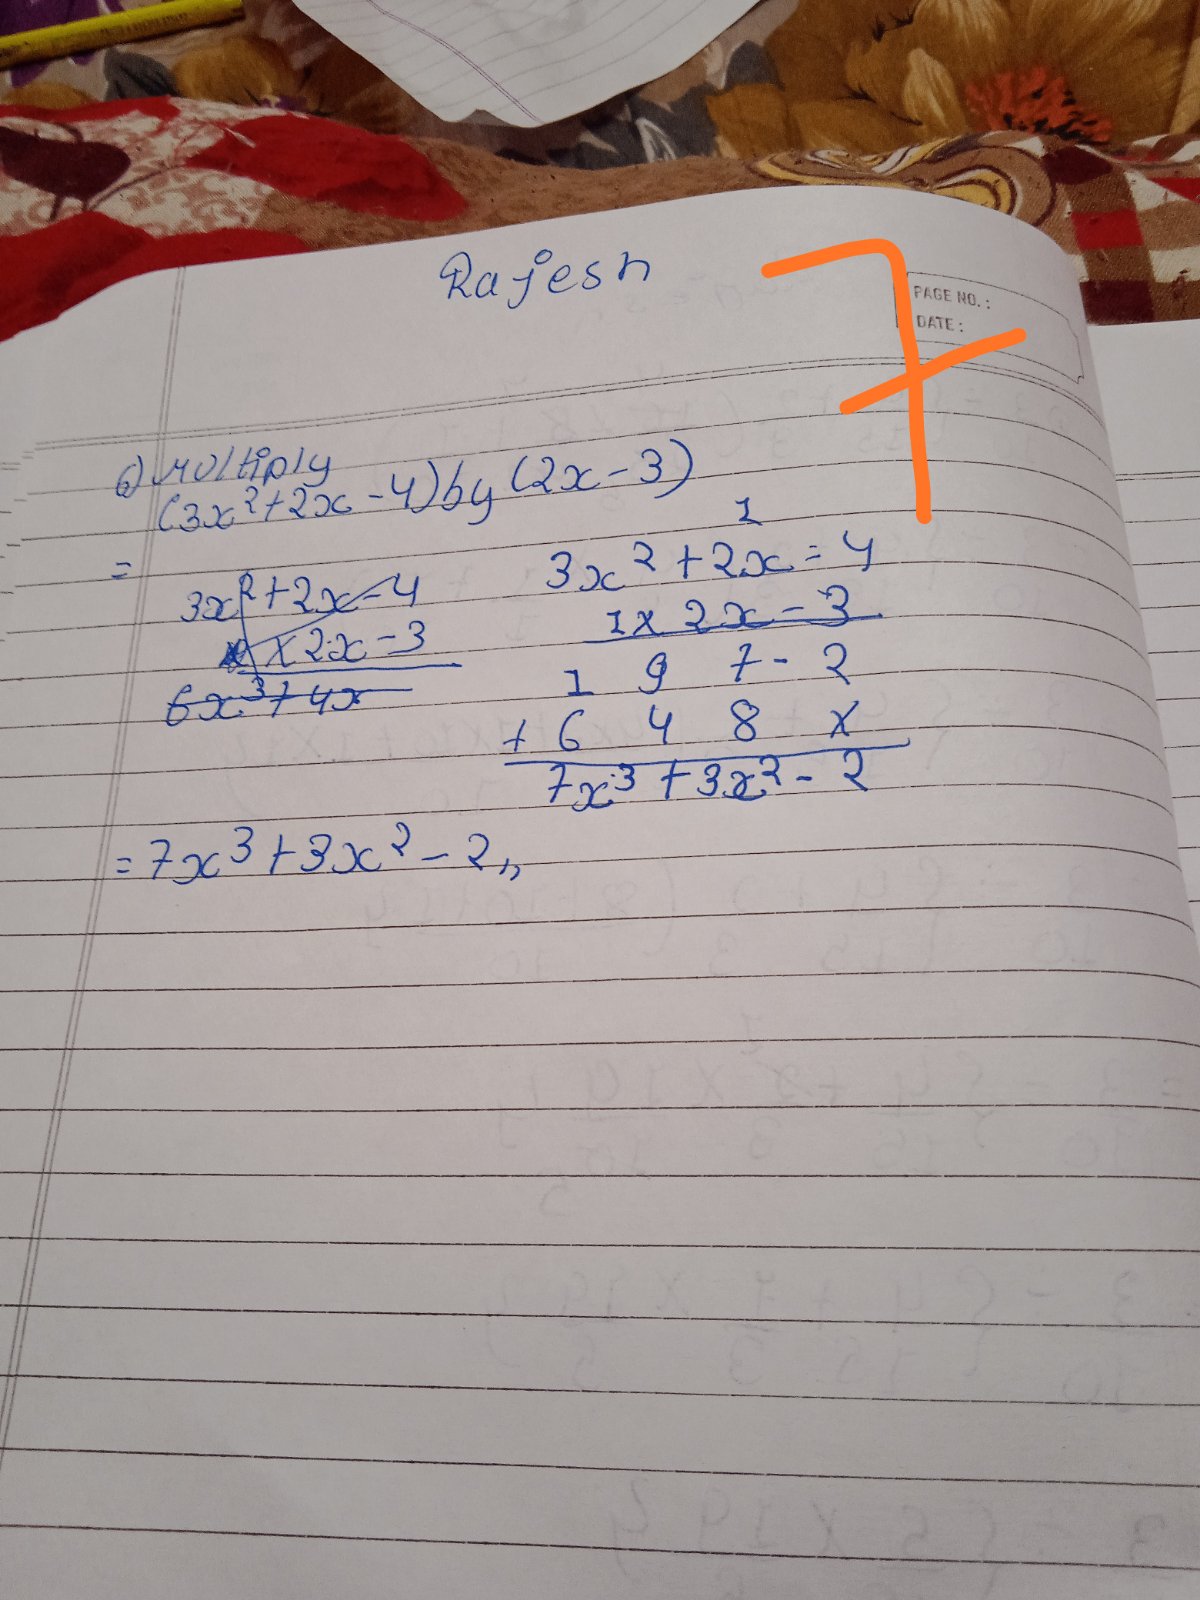 Rajesh
7
PAGE NO. :
DATE :
6) Multiply
(3x² + 2x - 4) by (2x - 3)
=
3x² + 2x - 4
x 2x - 3
6x³ + 4x
1
3x² + 2x = 4
1x 2x - 3
1 9 7 - 2
+ 6 4 8 x
7x³ + 3x² - 2
= 7x³ + 3x² - 2,,